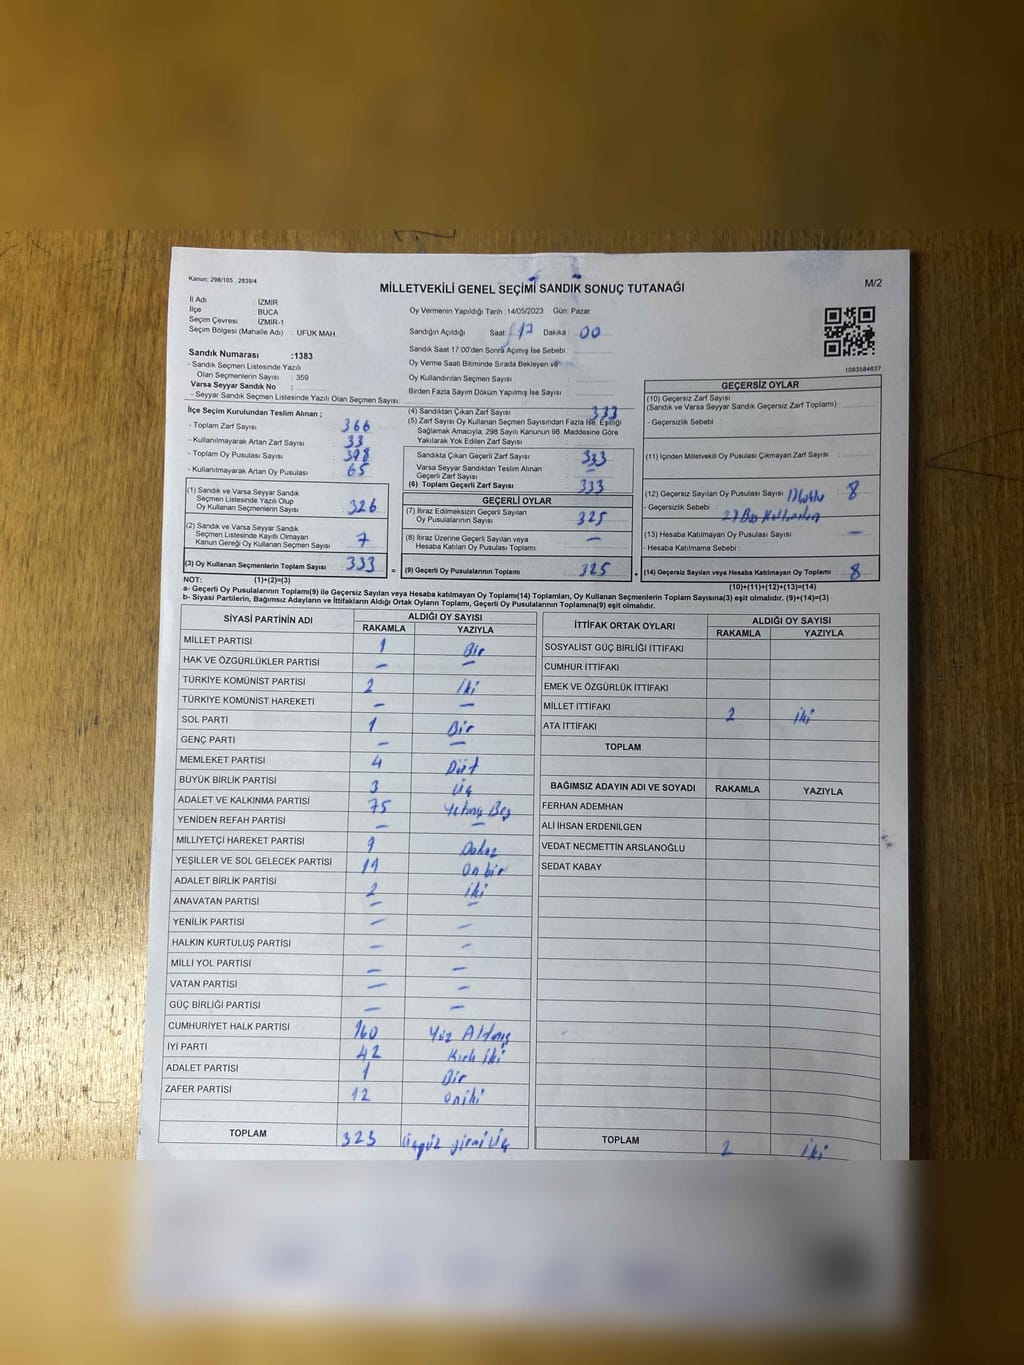 Kanun: 298/105 , 2839/4
MİLLETVEKİLİ GENEL SEÇİMİ SANDIK SONUÇ TUTANAĞI
M/2
İl Adı : İZMİR
İlçe : BUCA
Seçim Çevresi : İZMİR-1
Seçim Bölgesi (Mahalle Adı) : UFUK MAH.
Oy Vermenin Yapıldığı Tarih :14/05/2023 Gün: Pazar
Sandığın Açıldığı Saat : 17 Dakika : 00
Sandık Saat 17:00'den Sonra Açılmış İse Sebebi :
Oy Verme Saati Bitiminde Sırada Bekleyen ve
Oy Kullandırılan Seçmen Sayısı :
Birden Fazla Sayım Döküm Yapılmış İse Sayısı :
1083584637
Sandık Numarası :1383
- Sandık Seçmen Listesinde Yazılı
Olan Seçmenlerin Sayısı : 359
Varsa Seyyar Sandık No :
- Seyyar Sandık Seçmen Listesinde Yazılı Olan Seçmen Sayısı:
İlçe Seçim Kurulundan Teslim Alınan ;
- Toplam Zarf Sayısı : 366
- Kullanılmayarak Artan Zarf Sayısı : 33
- Toplam Oy Pusulası Sayısı : 398
- Kullanılmayarak Artan Oy Pusulası : 65
(1) Sandık ve Varsa Seyyar Sandık
Seçmen Listesinde Yazılı Olup
Oy Kullanan Seçmenlerin Sayısı : 326
(2) Sandık ve Varsa Seyyar Sandık
Seçmen Listesinde Kayıtlı Olmayan
Kanun Gereği Oy Kullanan Seçmen Sayısı : 7
(3) Oy Kullanan Seçmenlerin Toplam Sayısı : 333
(4) Sandıktan Çıkan Zarf Sayısı : 333
(5) Zarf Sayısı Oy Kullanan Seçmen Sayısından Fazla İse, Eşitliği
Sağlamak Amacıyla, 298 Sayılı Kanunun 98. Maddesine Göre
Yakılarak Yok Edilen Zarf Sayısı :
Sandıkta Çıkan Geçerli Zarf Sayısı : 333
Varsa Seyyar Sandıktan Teslim Alınan
Geçerli Zarf Sayısı : —
(6) Toplam Geçerli Zarf Sayısı : 333
GEÇERLİ OYLAR
(7) İtiraz Edilmeksizin Geçerli Sayılan
Oy Pusulalarının Sayısı : 325
(8) İtiraz Üzerine Geçerli Sayılan veya
Hesaba Katılan Oy Pusulası Toplamı : —
= (9) Geçerli Oy Pusulalarının Toplamı : 325
GEÇERSİZ OYLAR
(10) Geçersiz Zarf Sayısı
(Sandık ve Varsa Seyyar Sandık Geçersiz Zarf Toplamı) :
- Geçersizlik Sebebi :
(11) İçinden Milletvekili Oy Pusulası Çıkmayan Zarf Sayısı :
(12) Geçersiz Sayılan Oy Pusulası Sayısı : 8
- Geçersizlik Sebebi :
(13) Hesaba Katılmayan Oy Pusulası Sayısı : —
- Hesaba Katılmama Sebebi :
+ (14) Geçersiz Sayılan veya Hesaba Katılmayan Oy Toplamı : 8
NOT: (1)+(2)=(3) (10)+(11)+(12)+(13)=(14)
a- Geçerli Oy Pusulaları Toplamı(9) ile Geçersiz Sayılan veya Hesaba katılmayan Oy Toplamı(14) Toplamları, Oy Kullanan Seçmenlerin Toplam Sayısına(3) eşit olmalıdır. (9)+(14)=(3)
b- Siyasi Partilerin, Bağımsız Adayların ve İttifakların Aldığı Ortak Oyların Toplamı, Geçerli Oy Pusulalarının Toplamına(9) eşit olmalıdır.
SİYASİ PARTİNİN ADI ALDIĞI OY SAYISI
RAKAMLA YAZIYLA
MİLLET PARTİSİ 1 Bir
HAK VE ÖZGÜRLÜKLER PARTİSİ — —
TÜRKİYE KOMÜNİST PARTİSİ 2 İki
TÜRKİYE KOMÜNİST HAREKETİ — —
SOL PARTİ 1 Bir
GENÇ PARTİ — —
MEMLEKET PARTİSİ 4 Dört
BÜYÜK BİRLİK PARTİSİ 3 Üç
ADALET VE KALKINMA PARTİSİ 75 Yetmiş Beş
YENİDEN REFAH PARTİSİ — —
MİLLİYETÇİ HAREKET PARTİSİ 9 Dokuz
YEŞİLLER VE SOL GELECEK PARTİSİ 11 On bir
ADALET BİRLİK PARTİSİ 2 İki
ANAVATAN PARTİSİ — —
YENİLİK PARTİSİ — —
HALKIN KURTULUŞ PARTİSİ — —
MİLLİ YOL PARTİSİ — —
VATAN PARTİSİ — —
GÜÇ BİRLİĞİ PARTİSİ — —
CUMHURİYET HALK PARTİSİ 160 Yüz Altmış
İYİ PARTİ 42 Kırk İki
ADALET PARTİSİ 1 Bir
ZAFER PARTİSİ 12 Oniki
TOPLAM 323 Üçyüz yirmi Üç
İTTİFAK ORTAK OYLARI ALDIĞI OY SAYISI
RAKAMLA YAZIYLA
SOSYALİST GÜÇ BİRLİĞİ İTTİFAKI
CUMHUR İTTİFAKI
EMEK VE ÖZGÜRLÜK İTTİFAKI
MİLLET İTTİFAKI 2 İki
ATA İTTİFAKI
TOPLAM
BAĞIMSIZ ADAYIN ADI VE SOYADI RAKAMLA YAZIYLA
FERHAN ADEMHAN
ALİ İHSAN ERDENİLGEN
VEDAT NECMETTİN ARSLANOĞLU
SEDAT KABAY
TOPLAM 2 İki